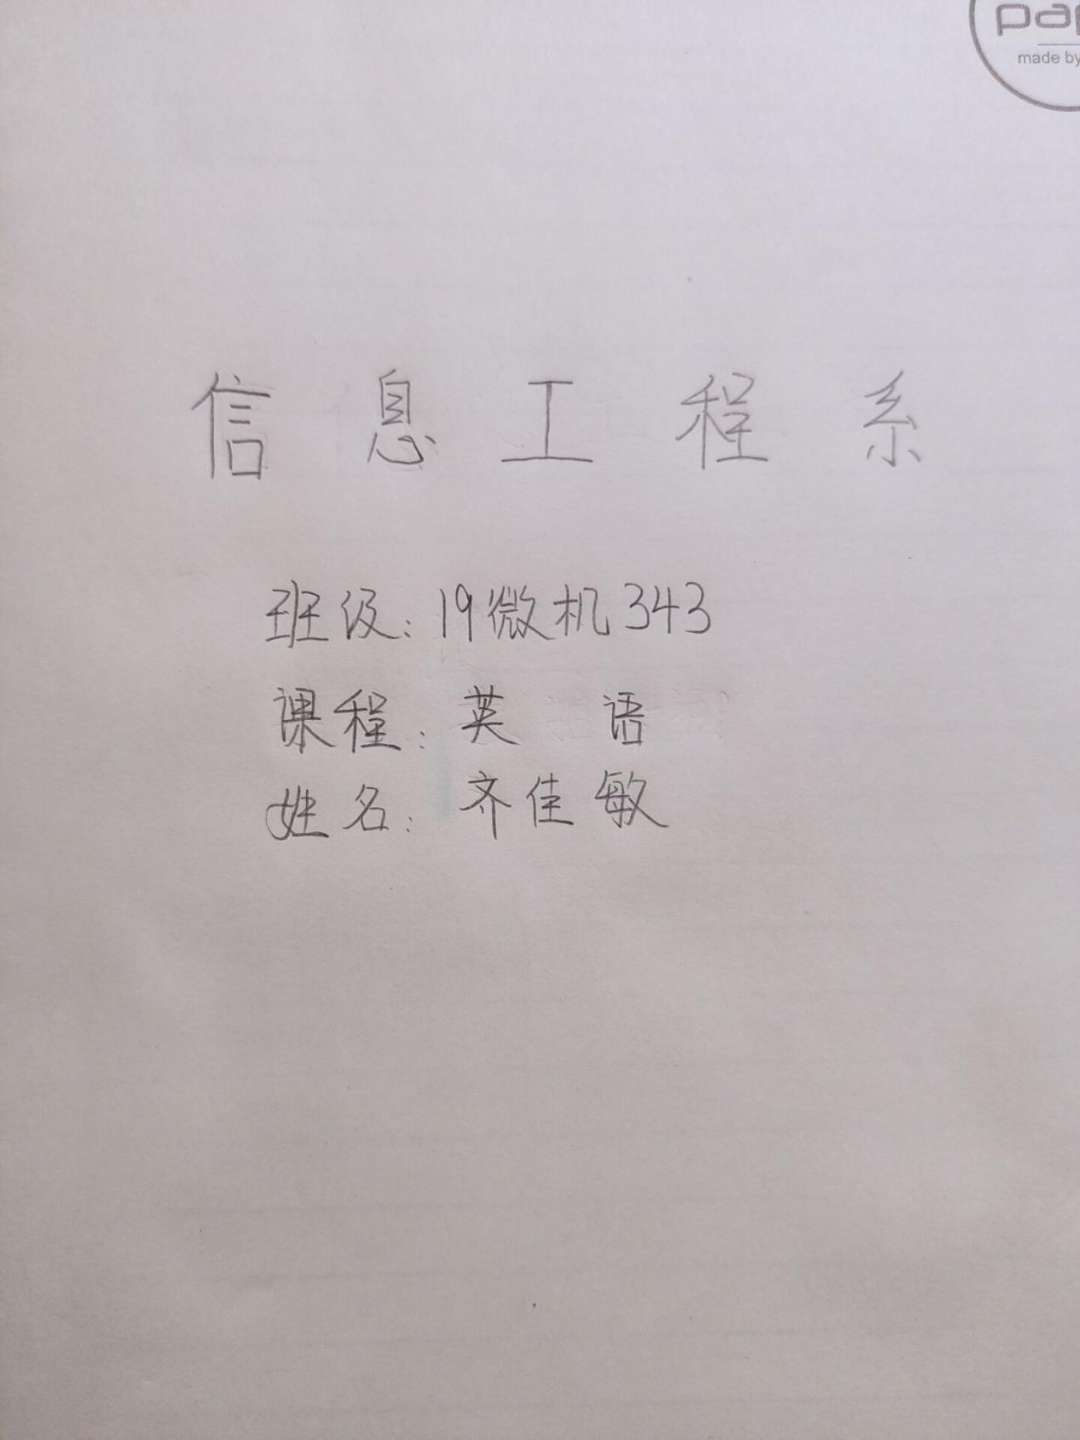 pap
made by
信息工程系
班级：19微机343
课程：英语
姓名：齐佳敏